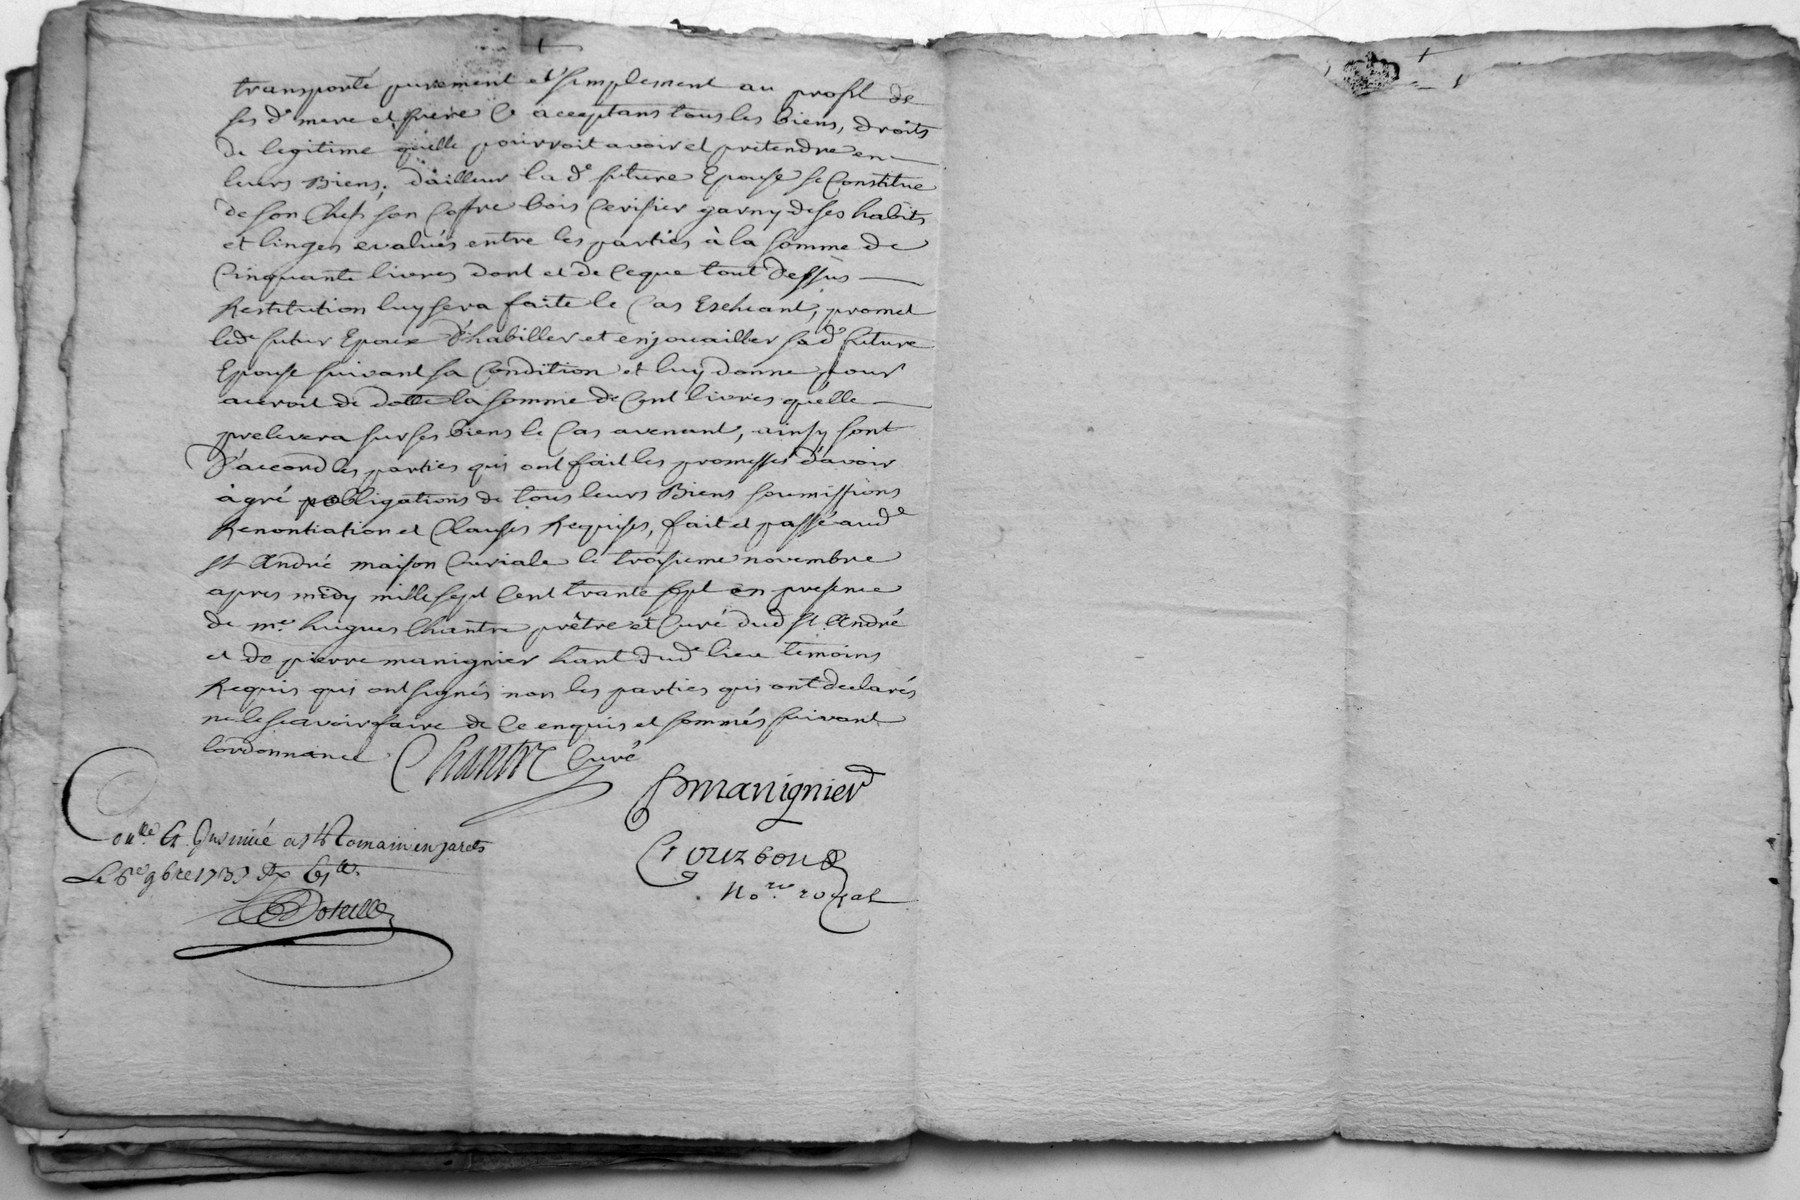 transporté purement et simplement au profit de
ses d. mere et frere & acceptans tous les biens, droits
de legitime qu'elle pourroit avoir et pretendre en
leurs Biens; d'ailleur la de future Epouse se Constitue
de son Chef son Coffre bois Cerisier garny de ses habits
et linges evalués entre les parties à la somme de
Cinquante livres dont et de Ceque tout dessus
Restitution luy sera faite le Cas Escheant, promet
led. futur Epoux d'habiller et enjouailler sad. future
Epouse suivant sa Condition et luy donne pour
aucroit de dotte la somme de Cent livres qu'elle
prelevera sur ses biens le Cas avenant, ainsy sont
D'accord les parties qui ont fait les promesses d'avoir
à gré obligations de tous leurs Biens soumissions
Renontiation et Clauses Requises, fait et passé aud.
St André maison Curiale le troisieme novembre
apres midy mille sept Cent trante sept en presence
de me. hugues Chantre prêtre et Curé dud St. André
et de pierre manignier hant dud. lieu temoins
Requis qui ont signés non les parties qui ont declarés
ne le scavoir faire de Ce enquis et sommés suivant
l'ordonnance Chantre Curé
manignier
Con.lle Et Insinué a St Romain en jarets
Le 6e 9bre 1737
Crouzbon
No.re royal